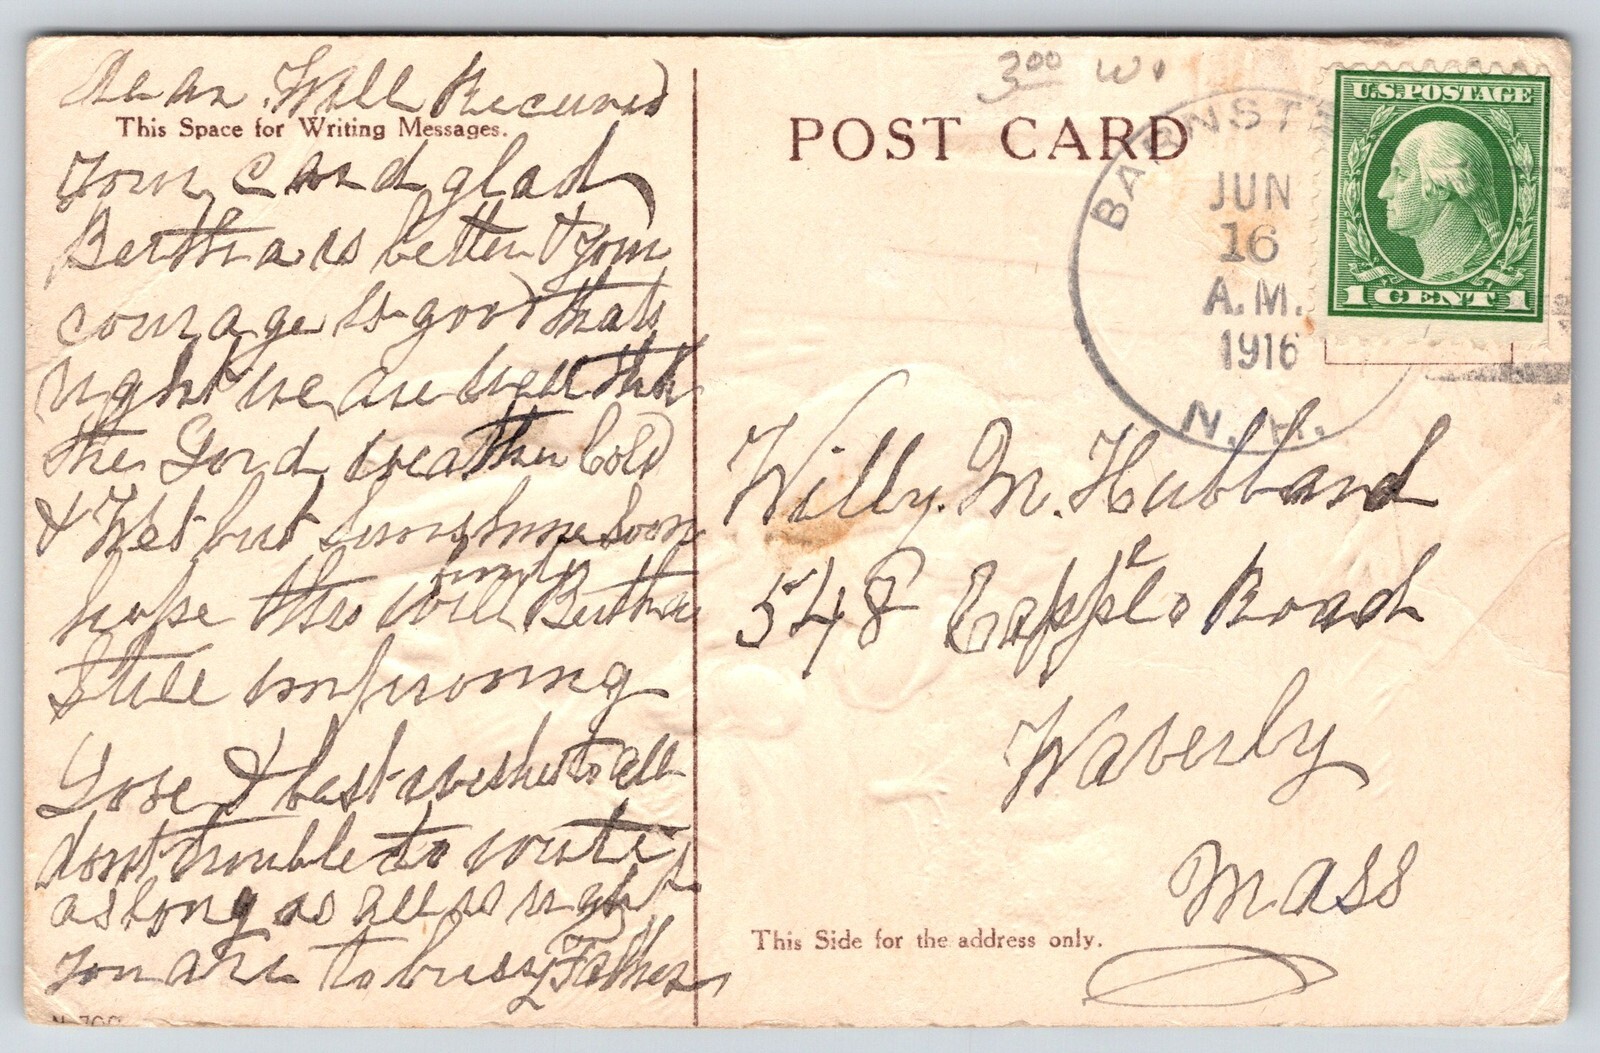 Dear Will Received
This Space for Writing Messages.
Your Card glad
Bertha is better & your
courage is good thats
right we are well thk
the Lord weather Cold
& Wet but sunshine soon
hope this will find Bertha
Still improving
Love & best wishes to all
dont trouble to write
as long as all is right
you are to busy Father
3.00 W.
POST CARD
BARNST
JUN
16
A.M.
1916
N.H.
U.S. POSTAGE
1 CENT 1
Willy. M. Hubbard
548 Road
Waverly
Mass
This Side for the address only.